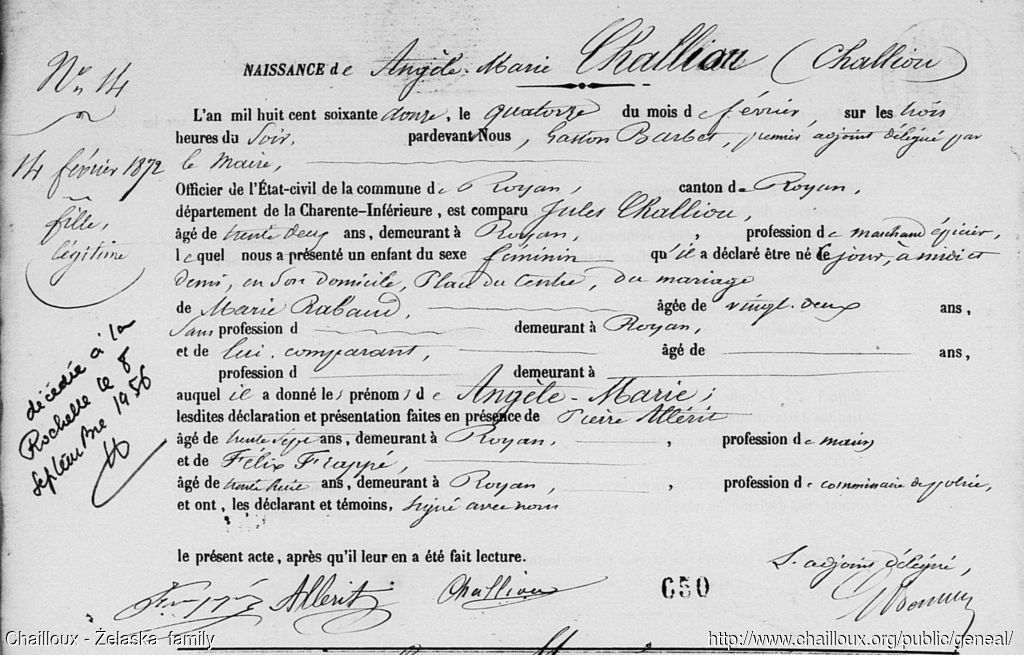 N° 14
14 février 1872
fille,
légitime
décédée à la
Rochelle le 8
septembre 1956
NAISSANCE de Angèle-Marie Challiou (Challiou)
L'an mil huit cent soixante douze, le quatorze du mois de février, sur les trois
heures du Soir, pardevant Nous, Gaston Barbet, premier adjoint délégué par
le Maire,
Officier de l'État-civil de la commune de Royan, canton de Royan,
département de la Charente-Inférieure, est comparu Jules Challiou,
âgé de trente deux ans, demeurant à Royan, , profession de marchand épicier,
lequel nous a présenté un enfant du sexe féminin qu'il a déclaré être né ce jour, à midi et
demi, en son domicile, Place du Centre, du mariage
de Marie Rabaud, âgée de vingt-deux ans,
Sans profession d demeurant à Royan,
et de lui, comparant, âgé de ans,
profession d demeurant à
auquel il a donné les prénoms de Angèle-Marie;
lesdites déclaration et présentation faites en présence de Pierre Allérit
âgé de trente sept ans, demeurant à Royan, , profession de marin
et de Félix Frappé,
âgé de trente huit ans, demeurant à Royan, , profession de commissaire de police,
et ont, les déclarant et témoins, signé avec nous
le présent acte, après qu'il leur en a été fait lecture.
L'adjoint délégué,
Allerit Challiou 650
Chailloux - Żelaska family http://www.chailloux.org/public/geneal/